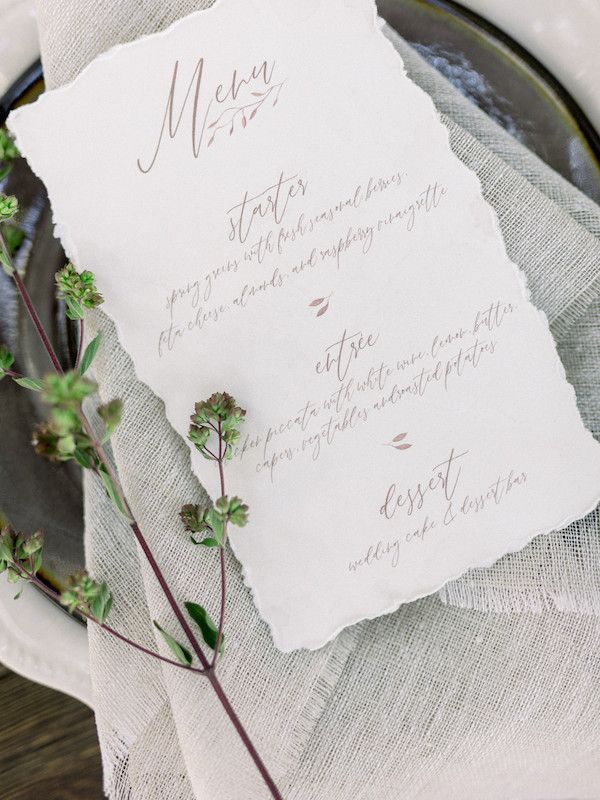 Menu
starter
spring greens with fresh seasonal berries,
feta cheese, almonds, and raspberry vinaigrette
entrée
piccata with white wine, lemon, butter,
capers, vegetables androasted potatoes
dessert
wedding cake & dessert bar